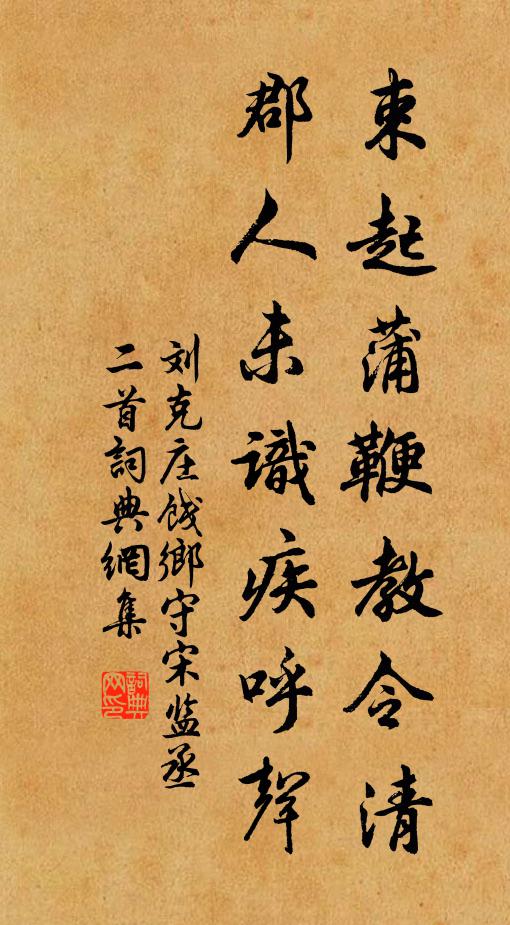 束起蒲鞭教令清
郡人未識疾呼聲
刘克庄餞鄉守宋监丞
二首詞典網集
詞典网印